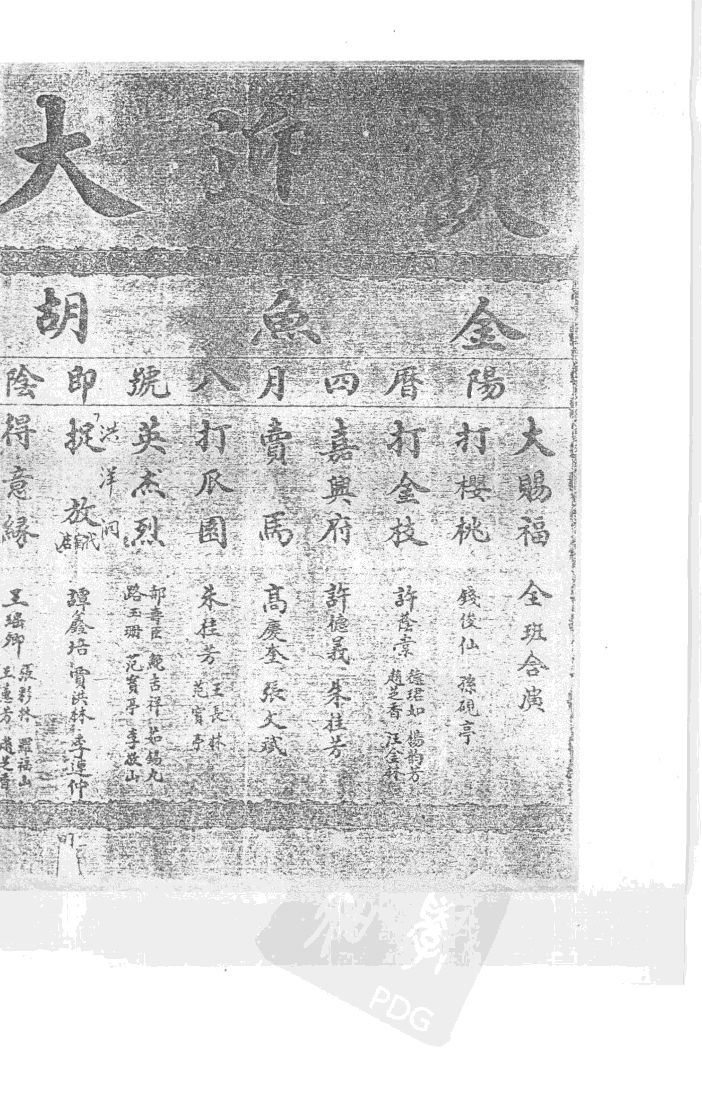 欵迎大
金魚胡
陽曆四月八號即陰
大賜福
全班合演
打櫻桃
錢俊仙 孫硯亭
打金枝
許蔭棠 楊韵芳
趙芝香
嘉興府
許德義 朱桂芳
賣馬
高慶奎 張文斌
打瓜園
朱桂芳 王長林
范寶亭
英杰烈
鮑吉祥 茹錫九
路玉珊 范寶亭 李敬山
洪洋洞
捉放
代宿店
譚鑫培 賈洪林 李連仲
得意緣
王瑶卿
張彩林 羅福山
王蕙芳 趙芝香
PDG